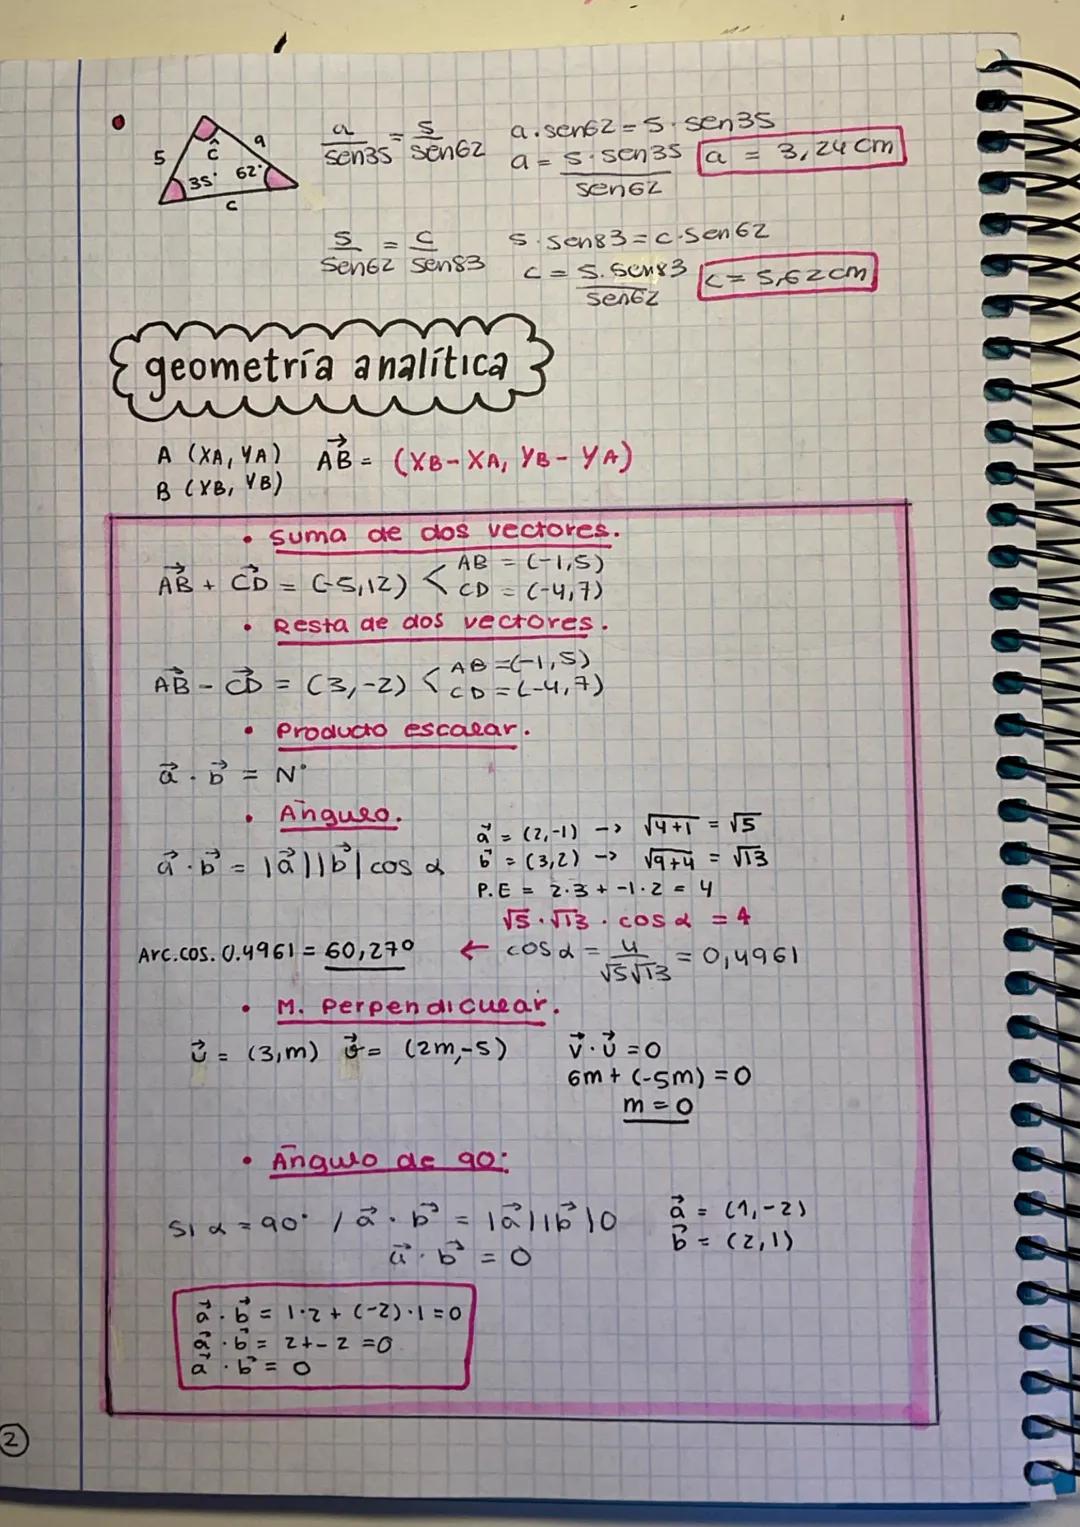 5 ĉ a
35° 62°
c
a/sen35 = 5/sen62 a.sen62 = 5.sen35
a = 5.sen35/sen62 a = 3,24 cm
5/sen62 = c/sen83 5.sen83 = c.sen62
c = 5.sen83/sen62 c = 5,62 cm
geometría analítica
A (XA, YA) AB⃗ = (XB - XA, YB - YA)
B (XB, YB)
• Suma de dos vectores.
AB⃗ + CD⃗ = (-5,12) < AB = (-1,5)
CD = (-4,7)
• Resta de dos vectores.
AB⃗ - CD⃗ = (3,-2) < AB = (-1,5)
CD = (-4,7)
• Producto escalar.
a⃗ . b⃗ = Nº
• Ángulo.
a⃗ = (2,-1) -> √4+1 = √5
a⃗ . b⃗ = |a⃗||b⃗| cos α b⃗ = (3,2) -> √9+4 = √13
P.E = 2·3 + -1·2 = 4
√5 · √13 . cos α = 4
Arc.cos. 0.4961 = 60,27º ← cos α = 4/√5√13 = 0,4961
• M. Perpendicular.
u⃗ = (3,m) v⃗ = (2m,-5) v⃗ · u⃗ = 0
6m + (-5m) = 0
m = 0
• Ángulo de 90:
Si α = 90° / a⃗ . b⃗ = |a⃗||b⃗|0 a⃗ = (1,-2)
a⃗ . b⃗ = 0 b⃗ = (2,1)
a⃗ . b⃗ = 1·2 + (-2)·1 = 0
a⃗ · b⃗ = 2+-2 = 0
a⃗ · b⃗ = 0
2